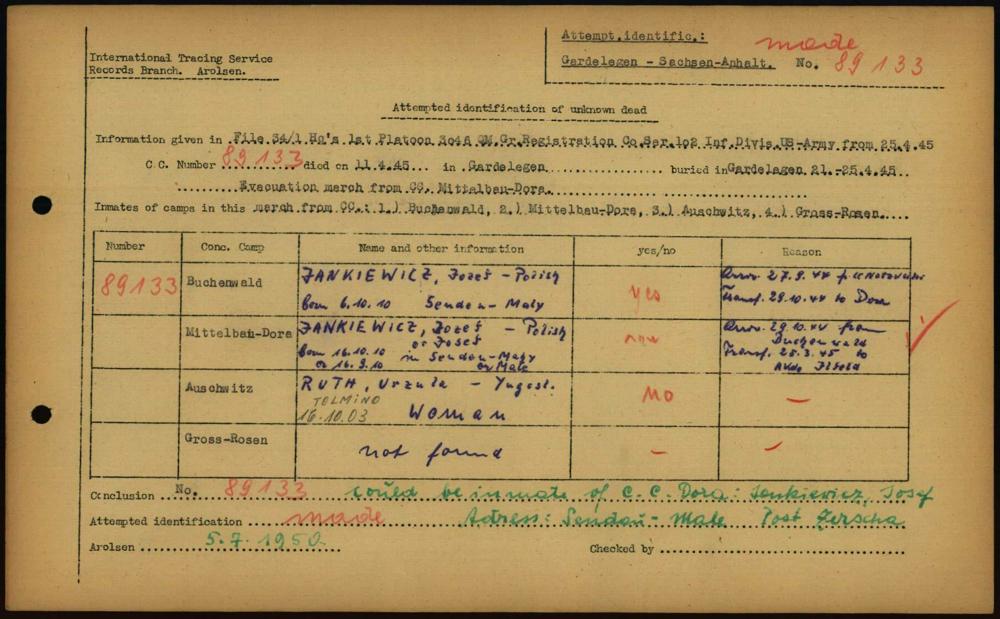 International Tracing Service
Records Branch. Arolsen.
Attempt.identific.: made
Gardelegen - Sachsen-Anhalt. No. 89133
Attempted identification of unknown dead
Information given in File 34/1 Hq's 1st Platoon 3046 QM.Gr.Registration Co.Ser.102 Inf.Divis.US-Army from 25.4.45
C.C. Number 89133 died on 11.4.45 in Gardelegen buried in Gardelegen 21.-25.4.45
Evacuation march from CC. Mittelbau-Dora.
Inmates of camps in this march from CC.: 1.) Buchenwald, 2.) Mittelbau-Dora, 3.) Auschwitz, 4.) Gross-Rosen
Number Conc. Camp Name and other information yes/no Reason
89133 Buchenwald JANKIEWICZ, Jozef - Polish yes
born 6.10.10 Sendou - Maly Transf. 29.10.44 to Dora
Mittelbau-Dora JANKIEWICZ, Jozef - Polish 29.10.44 from
or Josef Buchenwald
born 16.10.10 in Sendou-Maly Transf. 25.3.45 to
or 16.9.10 or Male
Auschwitz RUTH, Urzula - Yugosl. No —
TOLMINO
16.10.03 Woman
Gross-Rosen not found — —
Conclusion No. 89133 could be inmate of C.C. Dora: Jankiewicz, Josef
Attempted identification made Adress: Sendau - Male Post
Arolsen 5.7.1950 Checked by